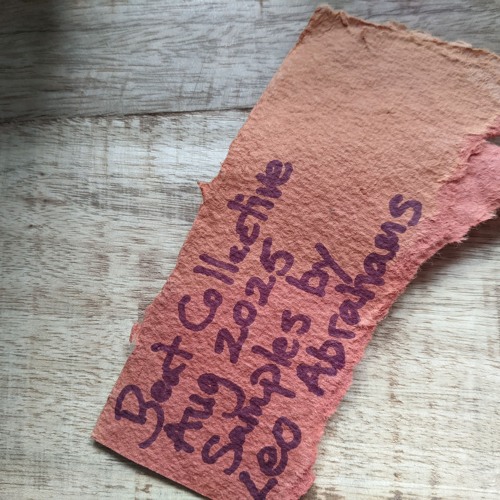 Beat Collective
Aug 2025
Samples by
Leo Abrahams